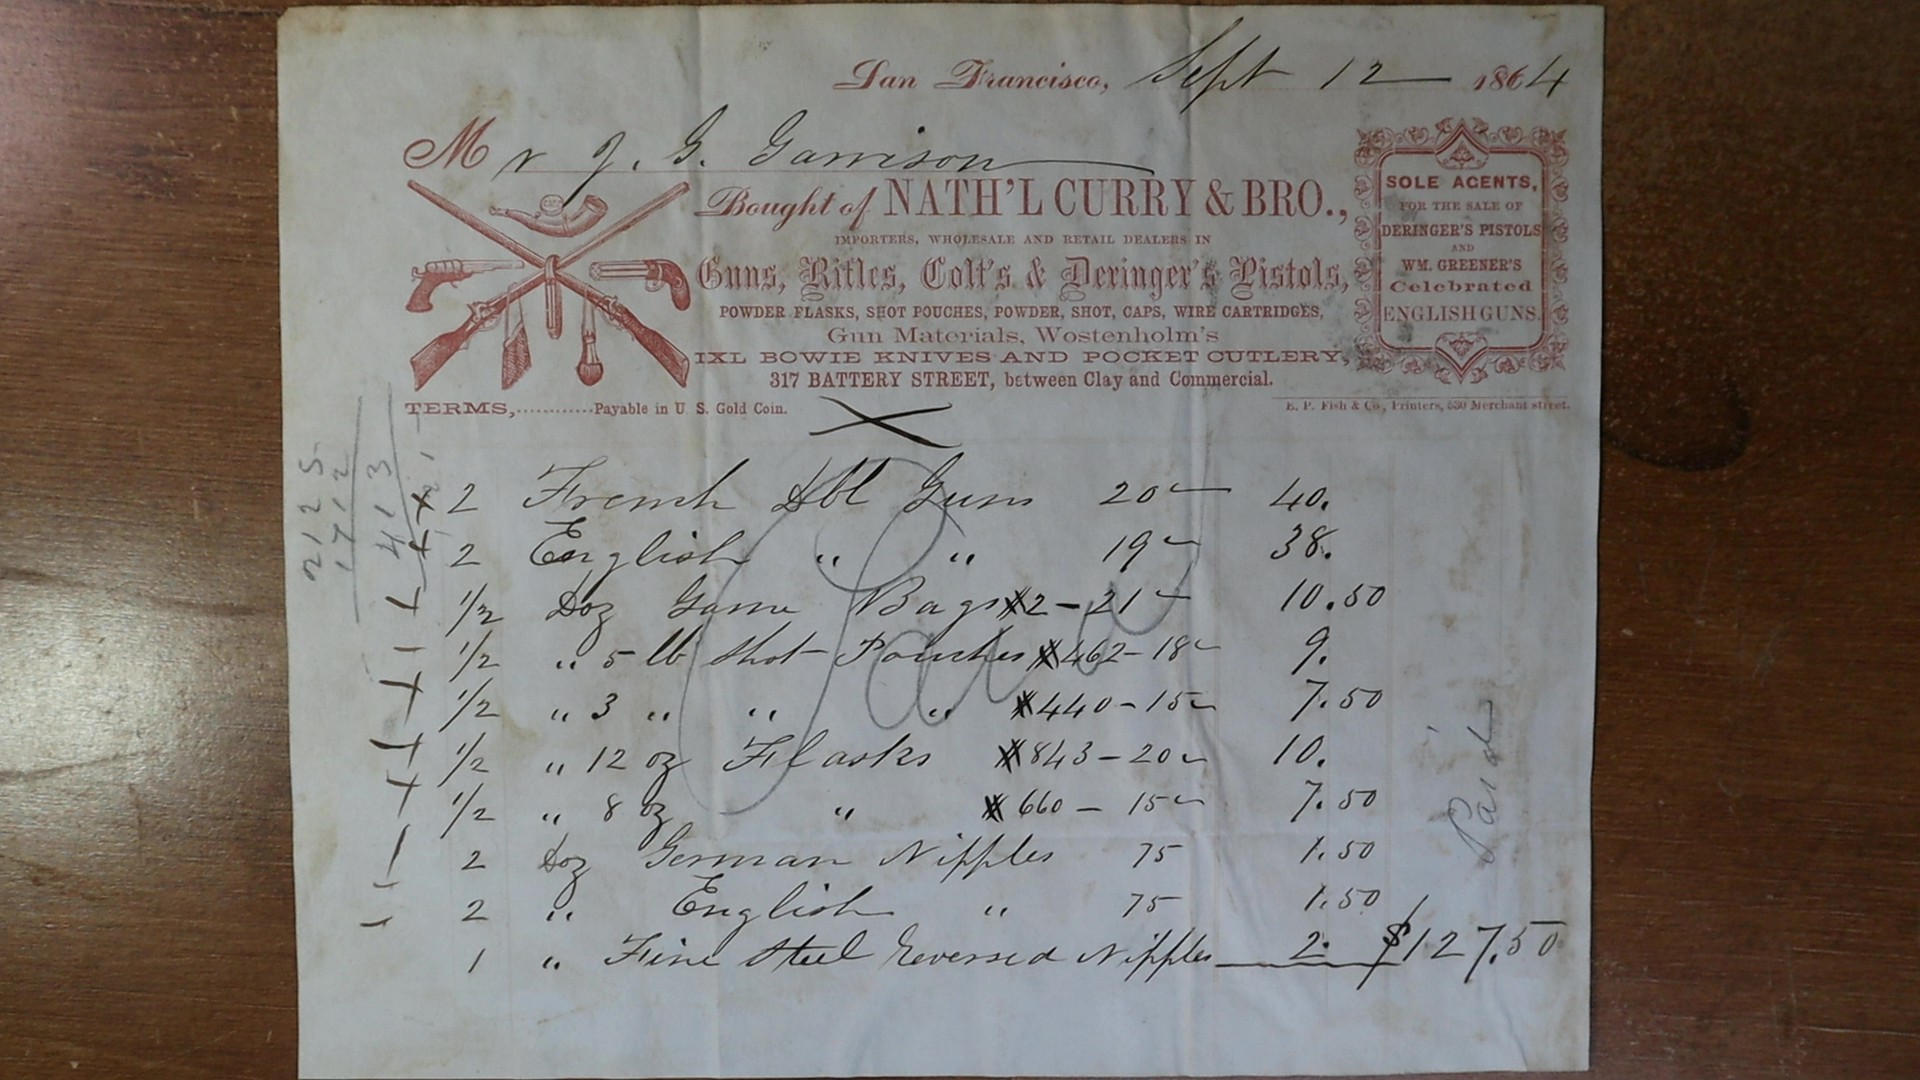 San Francisco, Sept 12 1864
Mr J. G. Garrison
Bought of NATH'L CURRY & BRO.,
IMPORTERS, WHOLESALE AND RETAIL DEALERS IN
Guns, Rifles, Colt's & Deringer's Pistols,
POWDER FLASKS, SHOT POUCHES, POWDER, SHOT, CAPS, WIRE CARTRIDGES,
Gun Materials, Wostenholm's
IXL BOWIE KNIVES AND POCKET CUTLERY,
317 BATTERY STREET, between Clay and Commercial.
SOLE AGENTS,
FOR THE SALE OF
DERINGER'S PISTOLS
AND
WM. GREENER'S
Celebrated
ENGLISH GUNS.
TERMS,............Payable in U. S. Gold Coin.
E. P. Fish & Co., Printers, 530 Merchant street.
2 French Dbl Guns 20 40.
2 English " " 19 38.
1/2 Doz Game Bags #2 - 21 10.50
1/2 " 5 lb Shot Pouches #462 - 18 9.
1/2 " 3 " " " #440 - 15 7.50
1/2 " 12 oz Flasks #843 - 20 10.
1/2 " 8 oz " #660 - 15 7.50
2 Doz German Nipples 75 1.50
2 " English " 75 1.50
1 " Fine Steel Reversed Nipples 2. $127.50
Paid
Paid
2125
1712
413